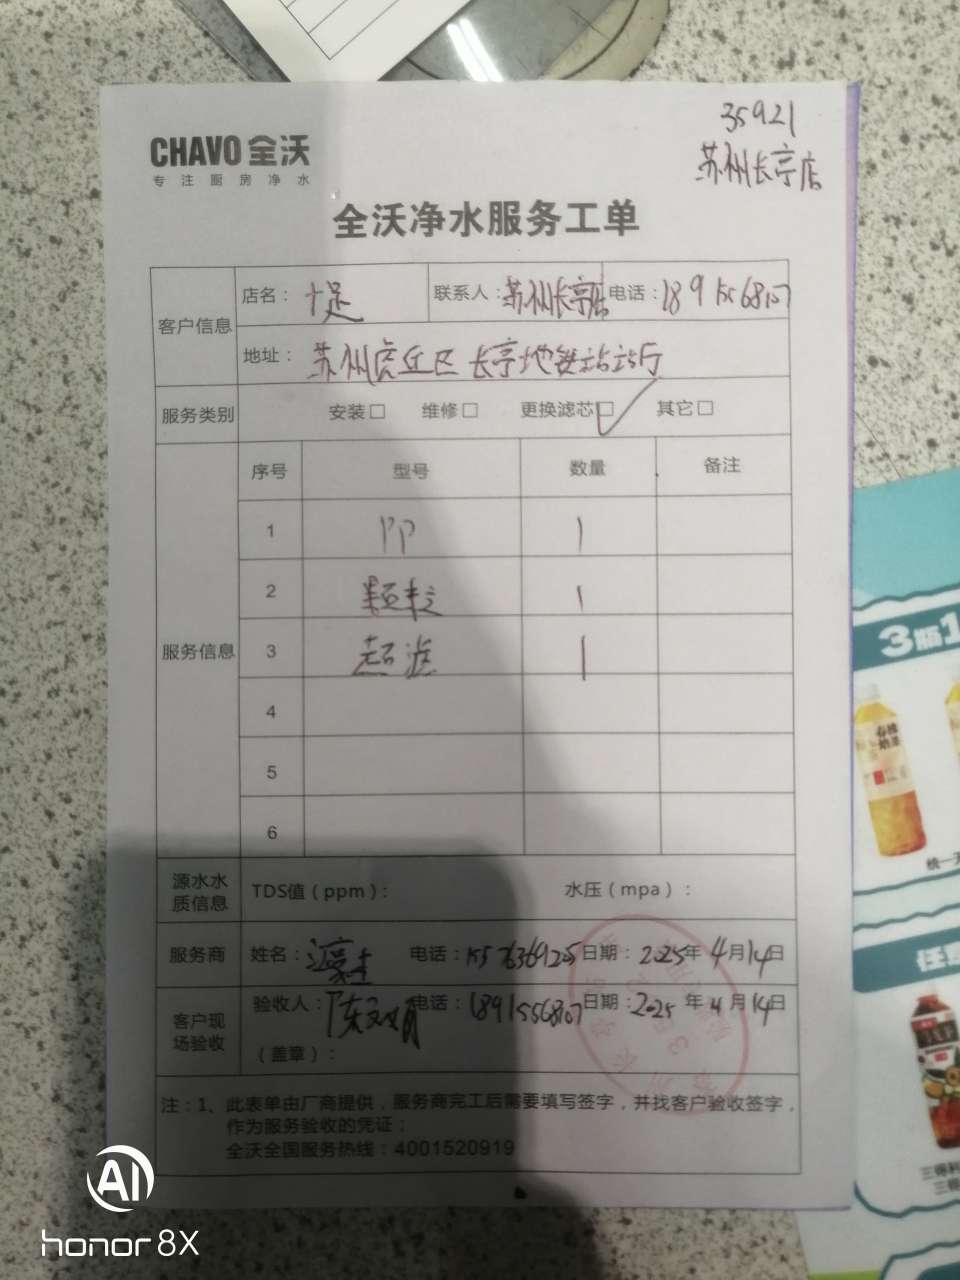 35921
苏州长亭店
CHAVO 全沃
专注厨房净水
全沃净水服务工单
客户信息
店名：十足 联系人：苏州长亭店 电话：18915568107
地址：苏州虎丘区长亭地铁站站厅
服务类别 安装□ 维修□ 更换滤芯□ 其它□
服务信息
序号 型号 数量 备注
1 PP 1
2 颗粒 1
3 超滤 1
4
5
6
源水水质信息 TDS值（ppm）： 水压（mpa）：
服务商 姓名： 电话：15576369205 日期：2025年4月14日
客户现场验收 验收人： 电话：18915568107 日期：2025年4月14日
（盖章）：
注：1、此表单由厂商提供，服务商完工后需要填写签字，并找客户验收签字，
作为服务验收的凭证；
全沃全国服务热线：4001520919
3瓶1
统一
任
三得利
三得
AI
honor 8X